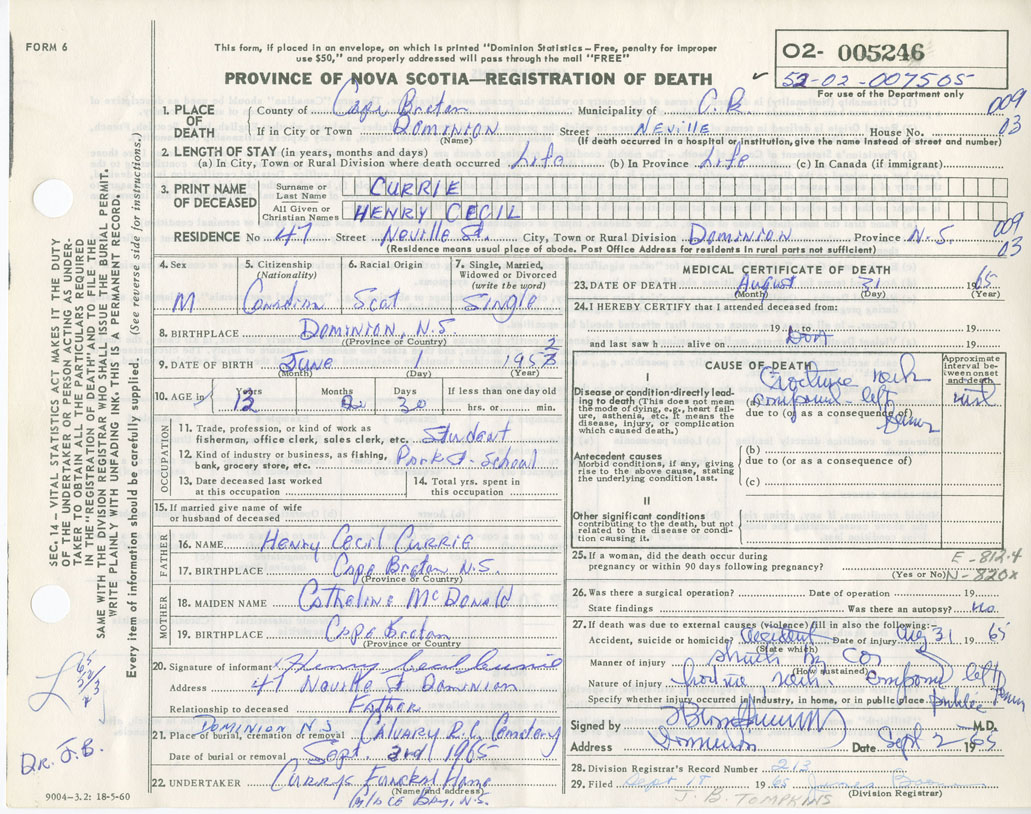 FORM 6
This form, if placed in an envelope, on which is printed "Dominion Statistics – Free, penalty for improper
use $50," and properly addressed will pass through the mail "FREE"
PROVINCE OF NOVA SCOTIA—REGISTRATION OF DEATH
O2- 005246
52-02-007505
For use of the Department only
1. PLACE OF DEATH
County of Cape Breton Municipality of C.B.
009
03
If in City or Town DOMINION Street NEVILLE House No.
(Name) (If death occurred in a hospital or institution, give the name instead of street and number)
2. LENGTH OF STAY (in years, months and days)
(a) In City, Town or Rural Division where death occurred Life (b) In Province Life (c) In Canada (if immigrant)
3. PRINT NAME OF DECEASED
Surname or Last Name CURRIE
All Given or Christian Names HENRY CECIL
RESIDENCE No 47 Street Neville St. City, Town or Rural Division DOMINION Province N.S.
009
03
(Residence means usual place of abode. Post Office Address for residents in rural parts not sufficient)
4. Sex M
5. Citizenship (Nationality) Canadian
6. Racial Origin Scot
7. Single, Married, Widowed or Divorced (write the word) Single
8. BIRTHPLACE DOMINION, N.S
(Province or Country)
9. DATE OF BIRTH June 1 195
(Month) (Day) (Year)
10. AGE in Years Months Days If less than one day old
30 hrs. or min.
OCCUPATION
11. Trade, profession, or kind of work as
fisherman, office clerk, sales clerk, etc. Student
12. Kind of industry or business, as fishing,
bank, grocery store, etc. Park St-School
13. Date deceased last worked at this occupation
14. Total yrs. spent in this occupation
15. If married give name of wife
or husband of deceased
FATHER
16. NAME Henry Cecil Currie
17. BIRTHPLACE Cape Breton N.S.
(Province or Country)
MOTHER
18. MAIDEN NAME Catheline McDonald
19. BIRTHPLACE Cape Breton
(Province or Country)
20. Signature of informant Henry Cecil Currie
Address 47 Neville St Dominion
Relationship to deceased Father
DOMINION N.S
21. Place of burial, cremation or removal Calvary R.C. Cemetery
Date of burial or removal Sept. 2nd 1965
22. UNDERTAKER Currys Funeral Home
(Name and address)
Glace Bay, N.S.
9004–3.2: 18-5-60
MEDICAL CERTIFICATE OF DEATH
23. DATE OF DEATH August 31 1965
(Month) (Day) (Year)
24. I HEREBY CERTIFY that I attended deceased from:
19 to 19
DOA
and last saw h alive on 19
CAUSE OF DEATH
Approximate interval between onset and death
I
Disease or condition directly leading to death (This does not mean the mode of dying, e.g., heart failure, asthenia, etc. It means the disease, injury, or complication which caused death.)
(a) Fracture neck
compound left femur
inst
due to (or as a consequence of)
Antecedent causes
Morbid conditions, if any, giving rise to the above cause, stating the underlying condition last.
(b)
due to (or as a consequence of)
(c)
II
Other significant conditions
contributing to the death, but not related to the disease or condition causing it.
25. If a woman, did the death occur during
pregnancy or within 90 days following pregnancy?
(Yes or No)
E-812.4
N-820x
26. Was there a surgical operation? Date of operation 19
State findings Was there an autopsy? no.
27. If death was due to external causes (violence) fill in also the following:
Accident, suicide or homicide? Accident Date of injury Aug 31 1965
(State which)
Manner of injury struck by car
(How sustained)
Nature of injury fracture neck. Compound left femur
Specify whether injury occurred in industry, in home, or in public place. public
Signed by M.D.
Address Dominion Date Sept 2 1965
28. Division Registrar's Record Number 213
29. Filed Sept 18 1965
(Division Registrar)
J. B. TOMPKINS
SEC. 14 – VITAL STATISTICS ACT MAKES IT THE DUTY
OF THE UNDERTAKER OR PERSON ACTING AS UNDER-
TAKER TO OBTAIN ALL THE PARTICULARS REQUIRED
IN THE "REGISTRATION OF DEATH" AND TO FILE THE
SAME WITH THE DIVISION REGISTRAR WHO SHALL ISSUE THE BURIAL PERMIT.
WRITE PLAINLY WITH UNFADING INK. THIS IS A PERMANENT RECORD.
Every item of information should be carefully supplied. (See reverse side for instructions.)
DR. J.B.